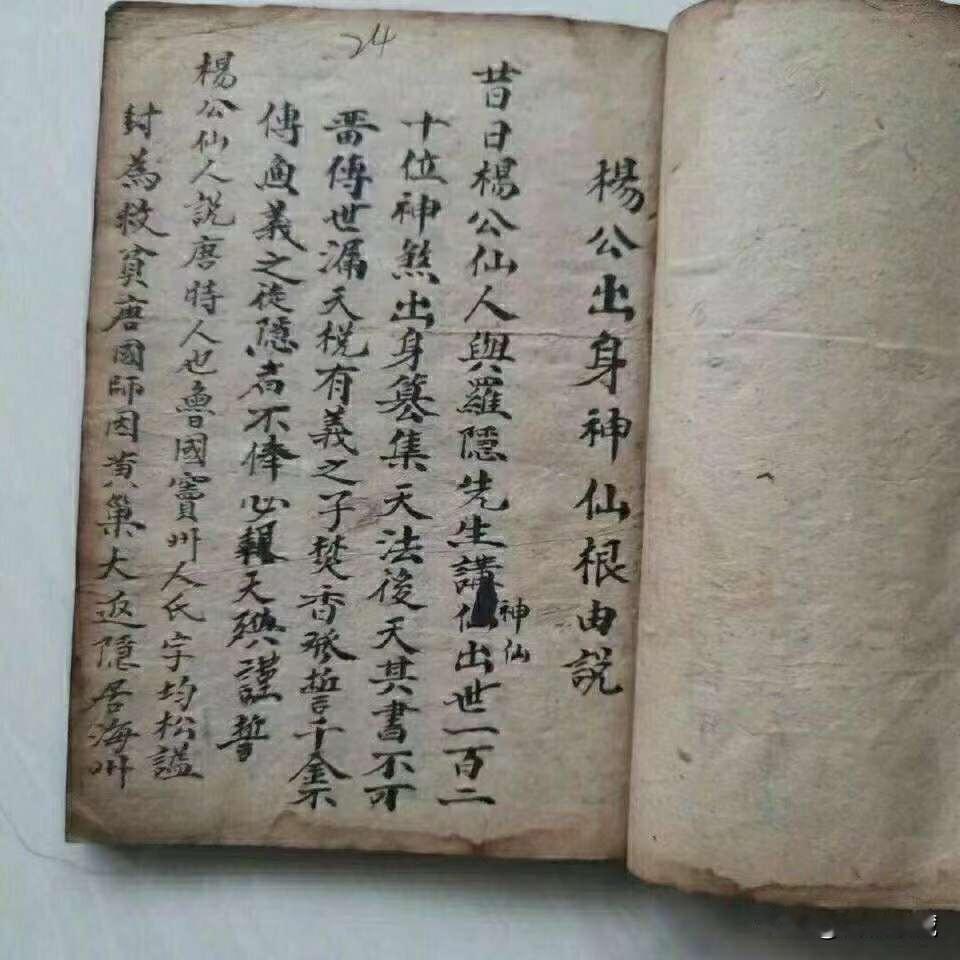 24
楊公出身神仙根由説
昔日楊公仙人與羅隱先生講神仙出世一百二
十位神煞出身纂集天法後天其書不可
畨傳世漏天税有義之子焚香發誓千金不
傳義之徒隱者不俸必報天殃謹誓
楊公仙人説唐時人也魯國竇州人氏字均松謚
封為救貧唐國師因黄巢大返隱居海州